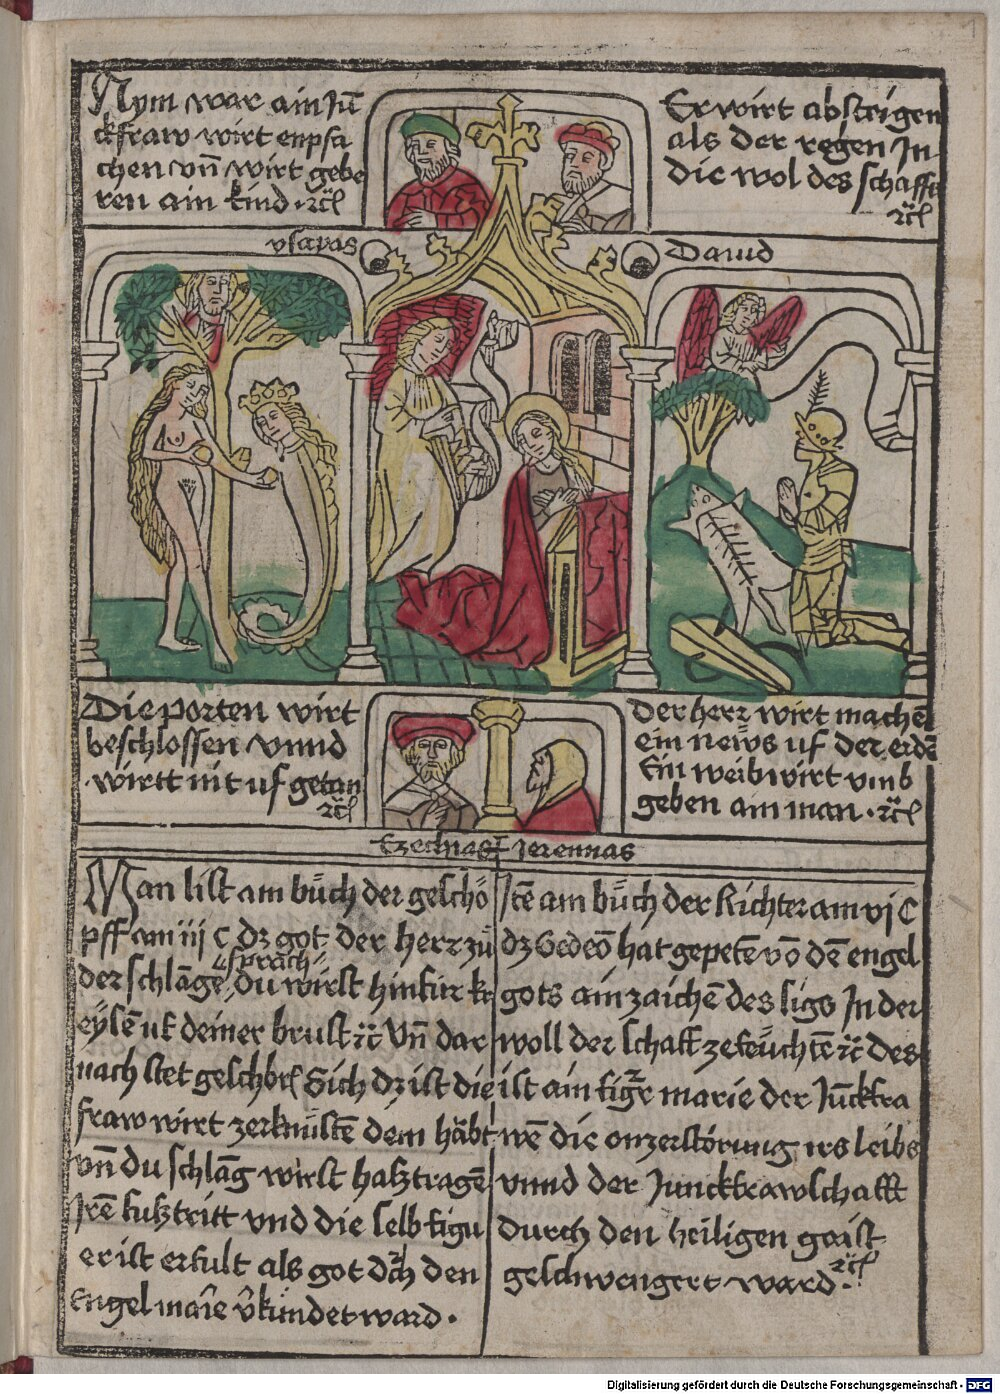 1
Nym war ain Jū
ckfraw wirt enpfa
chen vn̄ wirt gebe
ren ain kind · ꝛc̈
Er wirt absteigen
als der regen In
die wol des schaffs
ꝛc̈
ysayas
Dauid
Die porten wirt
beschlossen vnnd
wirtt nit uf getan
ꝛc̈
Der herr wirt machē
ein neẅs uf der erdē
Ein weib wirt vmb
geben ain man · ꝛc̈
Ezechias Jeremias
Man list am bůch der geschö
pff am iij c dz got der herr zů
der schlāge sprach du wirst hinfür kr
eÿsē uf deiner brust ꝛc̈ Vn̄ dar
nach stet geschbē Sich dz ist die
fraw wirt zerknüstē dem häbt
vn̄ du schlāg wirst haßtragē
Irē fußtritt vnd die selb figu
er ist erfult als got dch den
Engel marie v̄kündet ward ·
Itē am bůch der Richter am vj C
dz Gedeō hat gepetē vō dē engel
gots ain zaichē des sigs In der
woll der schaff ze feüchtē ꝛc̈ des
ist ain figr marie der Jūckfra
wē die onzerstörung irs leibs
vnnd der Junckfrawschafft
durch den heiligen gaist
geschwengert ward · ꝛc̈
Digitalisierung gefördert durch die Deutsche Forschungsgemeinschaft - DFG